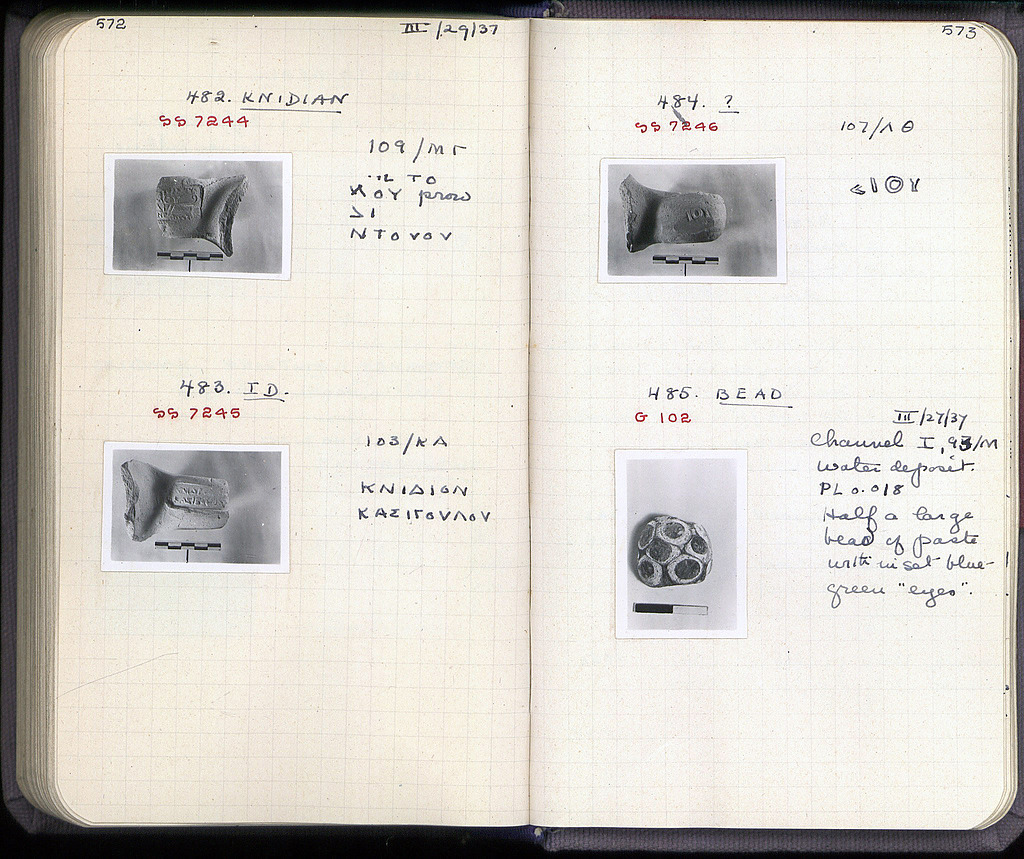 572
III/29/37
482. KNIDIAN
SS 7244
109/ΜΓ
ΤΟ
ΧΟΥ prow
ΔΙ
ΝΤΟΥΟΥ
483. ID.
SS 7245
103/ΚΑ
ΚΝΙΔΙΟΝ
ΚΑΣΙΓΟΥΛΟΥ
573
484. ?
SS 7246
107/ΛΘ
485. BEAD
G 102
III/27/37
Channel I, 93/Μ
water deposit.
PL 0.018
Half a large
bead of paste
with inset blue-
green "eyes".